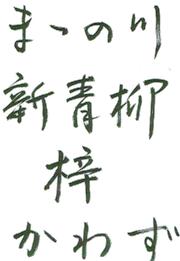 まつの川
新青柳
梓
かわず